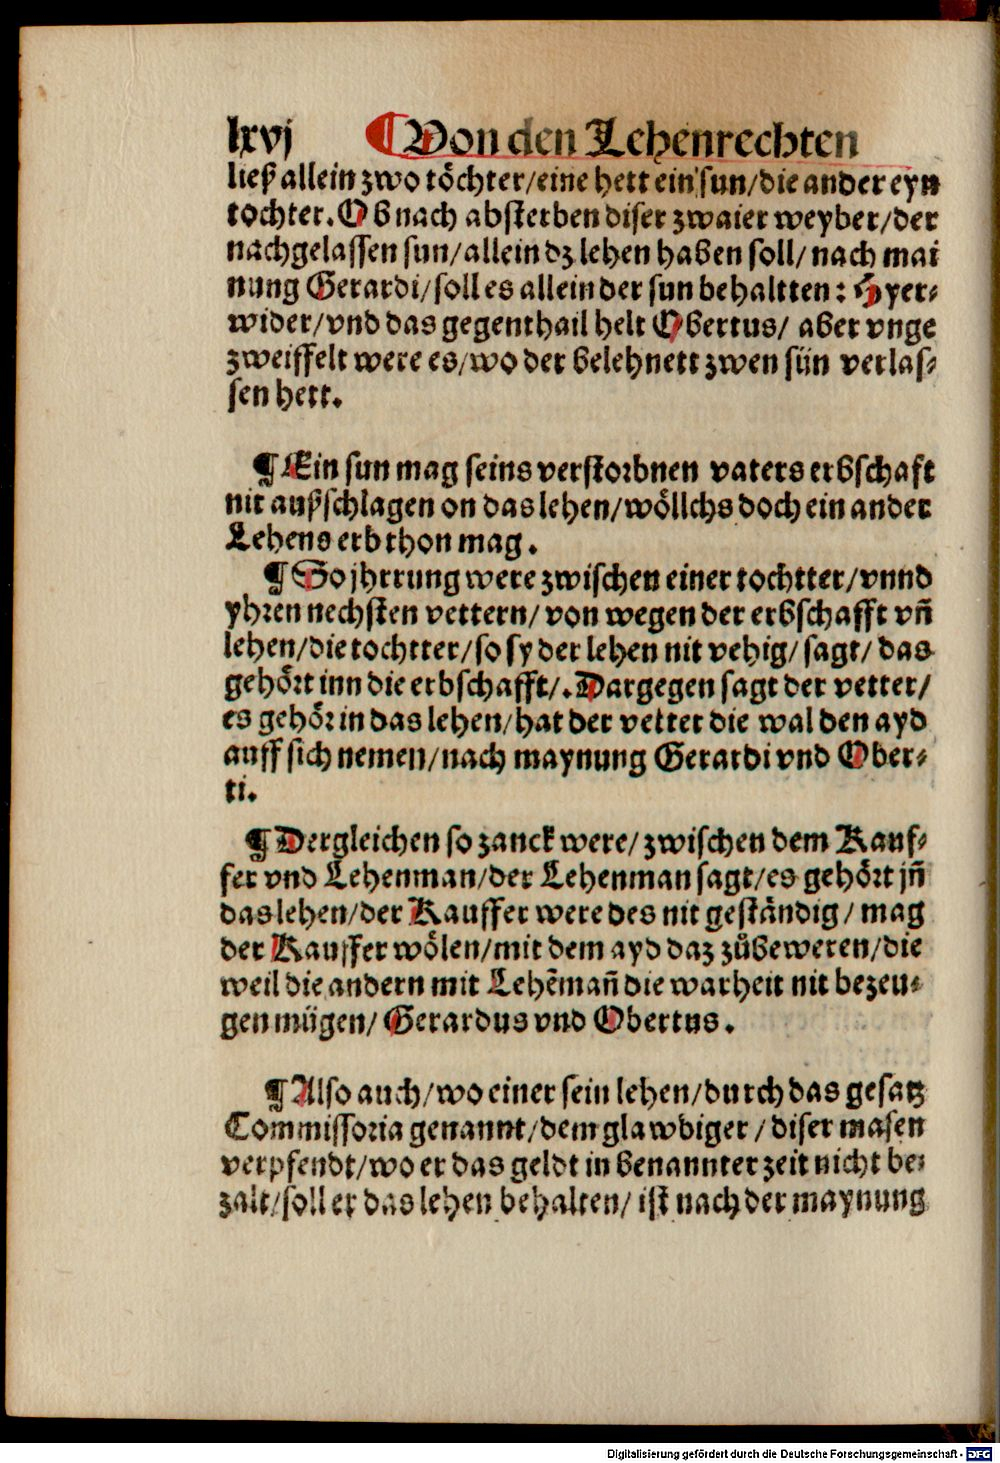 lxvj ¶Von den Lehenrechten
ließ allein zwo töchter/eine hett ein sun/die ander eyn
tochter. Ob nach absterben diser zwaier weyber/der
nachgelassen sun/allein dz lehen haben soll/ nach mai
nung Gerardi/soll es allein der sun behaltten: Hyer⸗
wider/vnd das gegenthail helt Obertus/ aber vnge
zweiffelt were es/wo der belehnett zwen sün verlas⸗
sen hett.
¶Ein sun mag seins verstorbnen vaters erbschaft
nit außschlagen on das lehen/wöllchs doch ein ander
Lehens erb thon mag.
¶So jhrrung were zwischen einer tochtter/vnnd
yhren nechsten vettern/ von wegen der erbschafft vñ
lehen/die tochtter/so sy der lehen nit vehig/ sagt/ das
gehört inn die erbschafft/. Dargegen sagt der vetter/
es gehör in das lehen/hat der vetter die wal den ayd
auff sich nemen/nach maynung Gerardi vnd Ober⸗
ti.
¶Dergleichen so zanck were/zwischen dem Kauf⸗
fer vnd Lehenman/der Lehenman sagt/es gehört jñ
das lehen/der Kauffer were des nit geständig/ mag
der Kauffer wölen/mit dem ayd daz zůbeweren/die
weil die andern mit Lehẽmañ die warheit nit bezeu⸗
gen mügen/ Gerardus vnd Obertus.
¶Also auch/wo einer sein lehen/durch das gesatz
Commissoria genannt/dem glawbiger/diser masen
verpfendt/wo er das geldt in benannter zeit nicht be⸗
zalt/soll er das lehen behalten/ ist nach der maynung
Digitalisierung gefördert durch die Deutsche Forschungsgemeinschaft - DFG